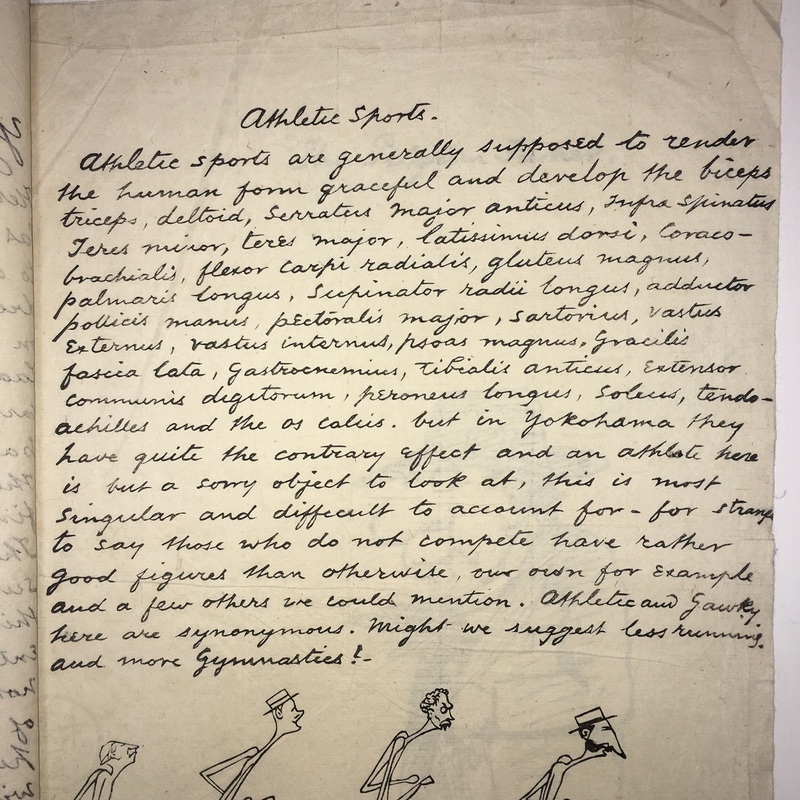 Athletic Sports.
Athletic sports are generally supposed to render
the human form graceful and develop the biceps
triceps, deltoid, Serratus Major anticus, Infra Spinatus
Teres minor, teres major, latissimus dorsi, Coraco-
brachialis, flexor Carpi radialis, gluteus magnus,
palmaris longus, Supinator radii longus, adductor
pollicis manus, pectoralis major, Sartorius, vastus
Externus, vastus internus, psoas magnus, Gracilis
fascia lata, Gastrocnemius, tibialis anticus, Extensor
Communis digitorum, peroneus longus, Soleus, tendo-
achilles and the os calcis. but in Yokohama they
have quite the contrary effect and an athlete here
is but a sorry object to look at, this is most
Singular and difficult to account for - for strange
to say those who do not compete have rather
good figures than otherwise, our own for Example
and a few others we could mention. Athletic and Gawky
here are synonymous. Might we suggest less running
and more Gymnastics!-